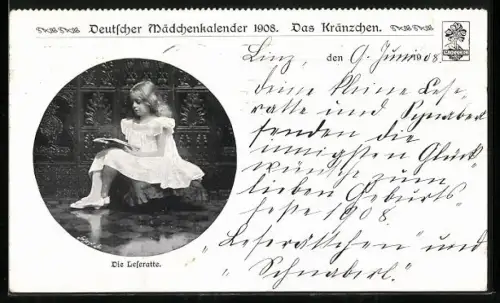 Deutscher Mädchenkalender 1908. Das Kränzchen.
Linz, den 9. Juni 1908
deine kleine Lese-
ratte und Schnaberl
senden die
innigsten Glück-
wünsche zum
lieben Geburts-
feste 1908.
„Leserättchen" und
Schnaberl."
Die Leseratte.